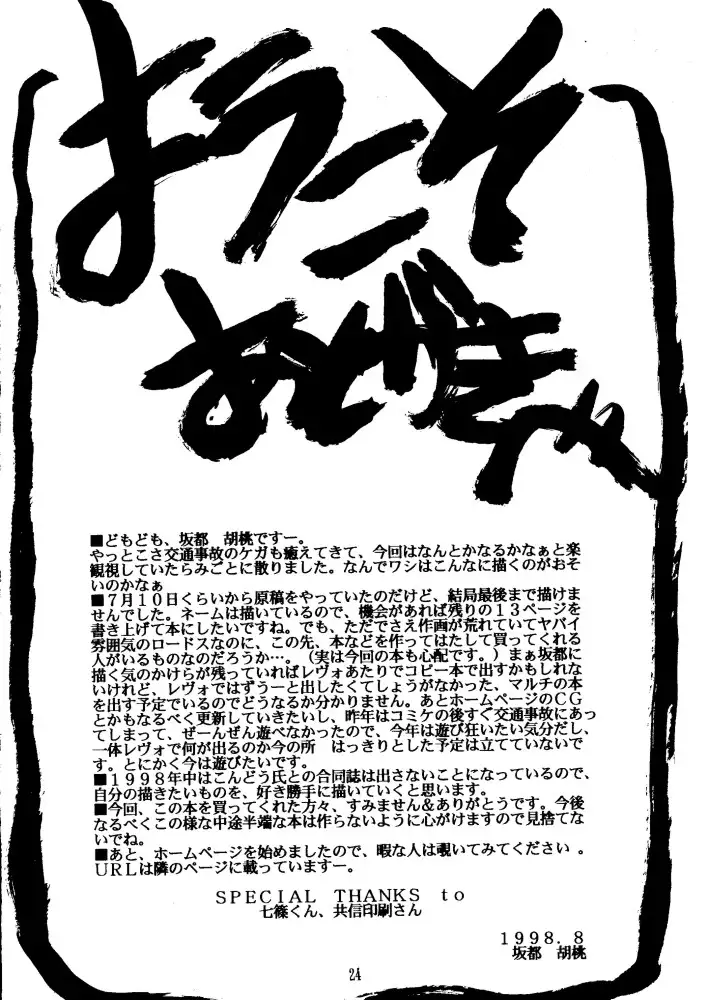 ようこそ
■どもども、坂都　胡桃ですー。
やっとこさ交通事故のケガも癒えてきて、今回はなんとかなるかなぁと楽
観視していたらみごとに散りました。なんでワシはこんなに描くのがおそ
いのかなぁ
■７月１０日くらいから原稿をやっていたのだけど、結局最後まで描けま
せんでした。ネームは描いているので、機会があれば残りの１３ページを
書き上げて本にしたいですね。でも、ただでさえ作画が荒れていてヤバイ
雰囲気のロードスなのに、この先、本などを作ってはたして買ってくれる
人がいるものなのだろうか…。（実は今回の本も心配です。）まぁ坂都に
描く気のかけらが残っていればレヴォあたりでコピー本で出すかもしれな
いけれど、レヴォではずうーっと出したくてしょうがなかった、マルチの本
を出す予定でいるのでどうなるか分かりません。あとホームページのＣＧ
とかもなるべく更新していきたいし、昨年はコミケの後すぐ交通事故にあっ
てしまって、ぜーんぜん遊べなかったので、今年は遊び狂いたい気分だし、
一体レヴォで何が出るのか今の所　はっきりとした予定は立てていないで
す。とにかく今は遊びたいです。
■１９９８年中はこんどう氏との合同誌は出さないことになっているので、
自分の描きたいものを、好き勝手に描いていくと思います。
■今回、この本を買ってくれた方々、すみません＆ありがとうです。今後
なるべくこの様な中途半端な本は作らないように心がけますので見捨てな
いでね。
■あと、ホームページを始めましたので、暇な人は覗いてみてください 。
ＵＲＬは隣のページに載っていますー。
ＳＰＥＣＩＡＬ　ＴＨＡＮＫＳ　ｔｏ
七篠くん、共信印刷さん
１９９８．８
坂都　胡桃
24